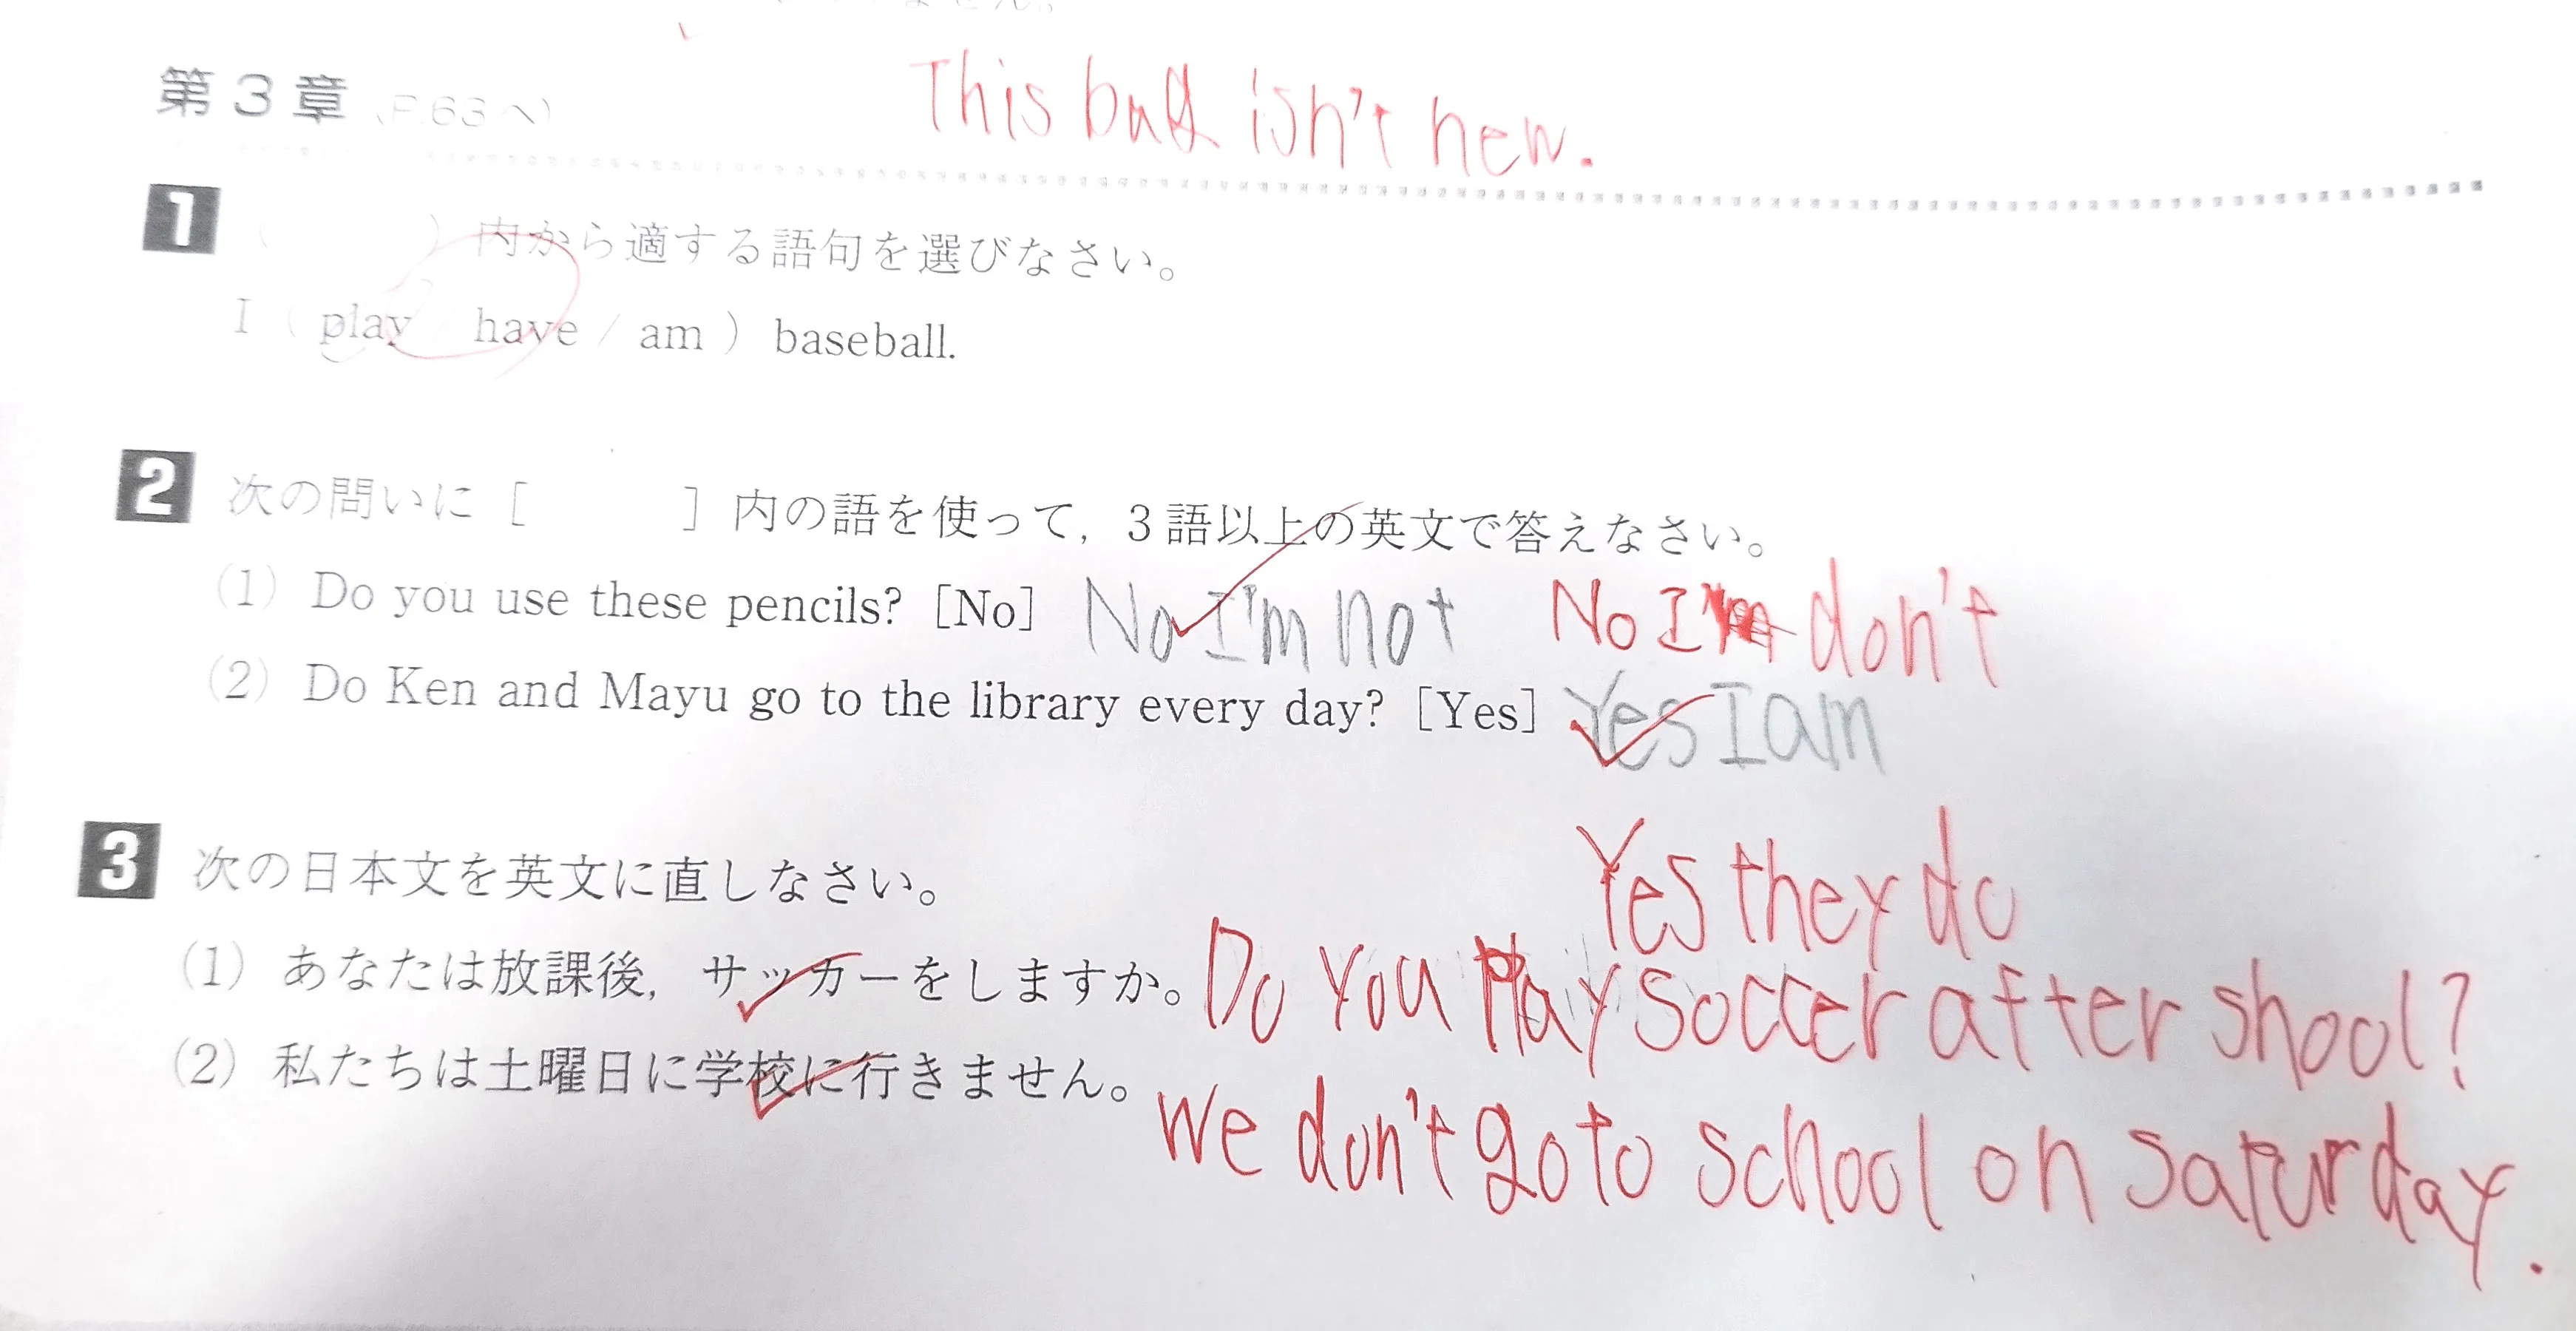 第3章 (P.63へ)
This bag isn't new.
1 ( )内から適する語句を選びなさい。
I ( play / have / am ) baseball.
2 次の問いに [ ] 内の語を使って, 3語以上の英文で答えなさい。
(1) Do you use these pencils? [No] No I'm not No I don't
(2) Do Ken and Mayu go to the library every day? [Yes] Yes I am
Yes they do
3 次の日本文を英文に直しなさい。
(1) あなたは放課後, サッカーをしますか。 Do you play soccer after shool?
(2) 私たちは土曜日に学校に行きません。 We don't go to school on saturday.